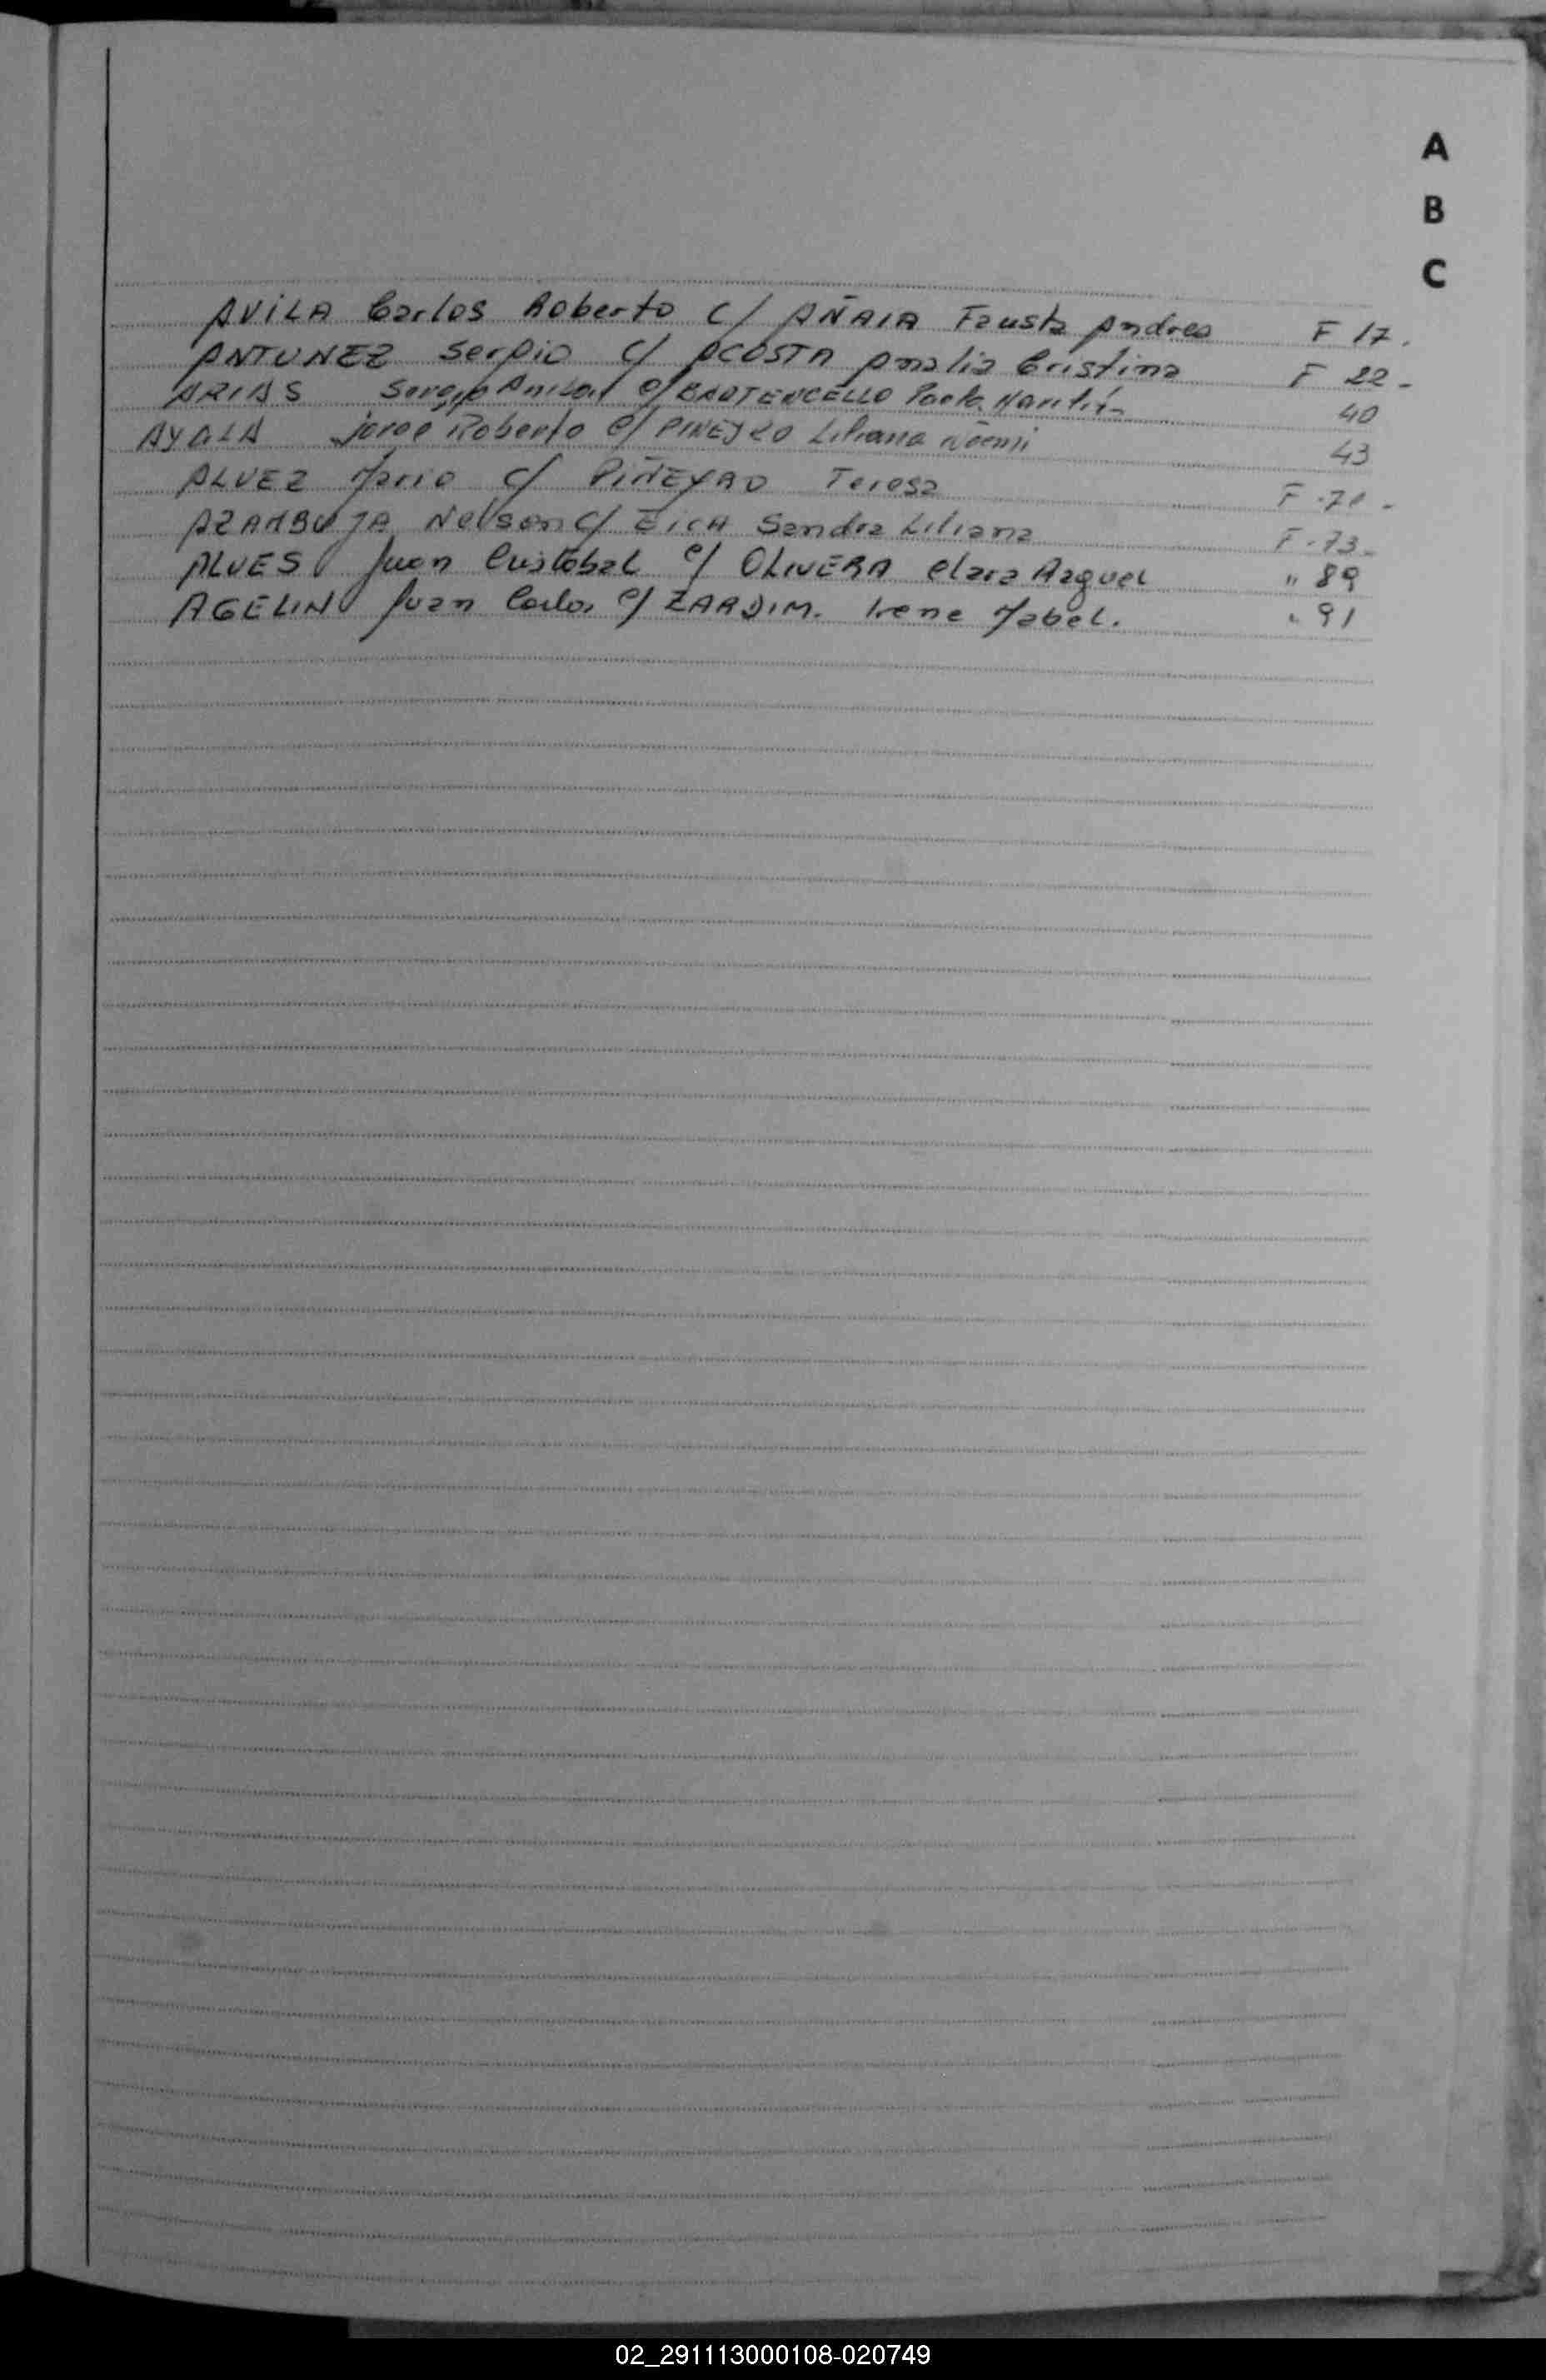 A
B
C
AVILA Carlos Roberto C/ AÑAIA Fausta Andrea F 17.
ANTUNEZ Sergio C/ ACOSTA Amalia Cristina F 22-
ARIAS Sergio Anibal C/ Paola 40
AYALA Jorge Roberto C/ PINEYRO Liliana Noemi 43
ALVEZ Mario C/ PIÑEYRO Teresa F-71-
AZAMBUJA Nelson C/ Sandra Liliana F-73-
ALVES Juan Cristobal C/ OLIVERA Clara Raquel " 89
AGELIN Juan Carlos C/ ZARDIM. Irene Mabel. " 91
02_291113000108-020749